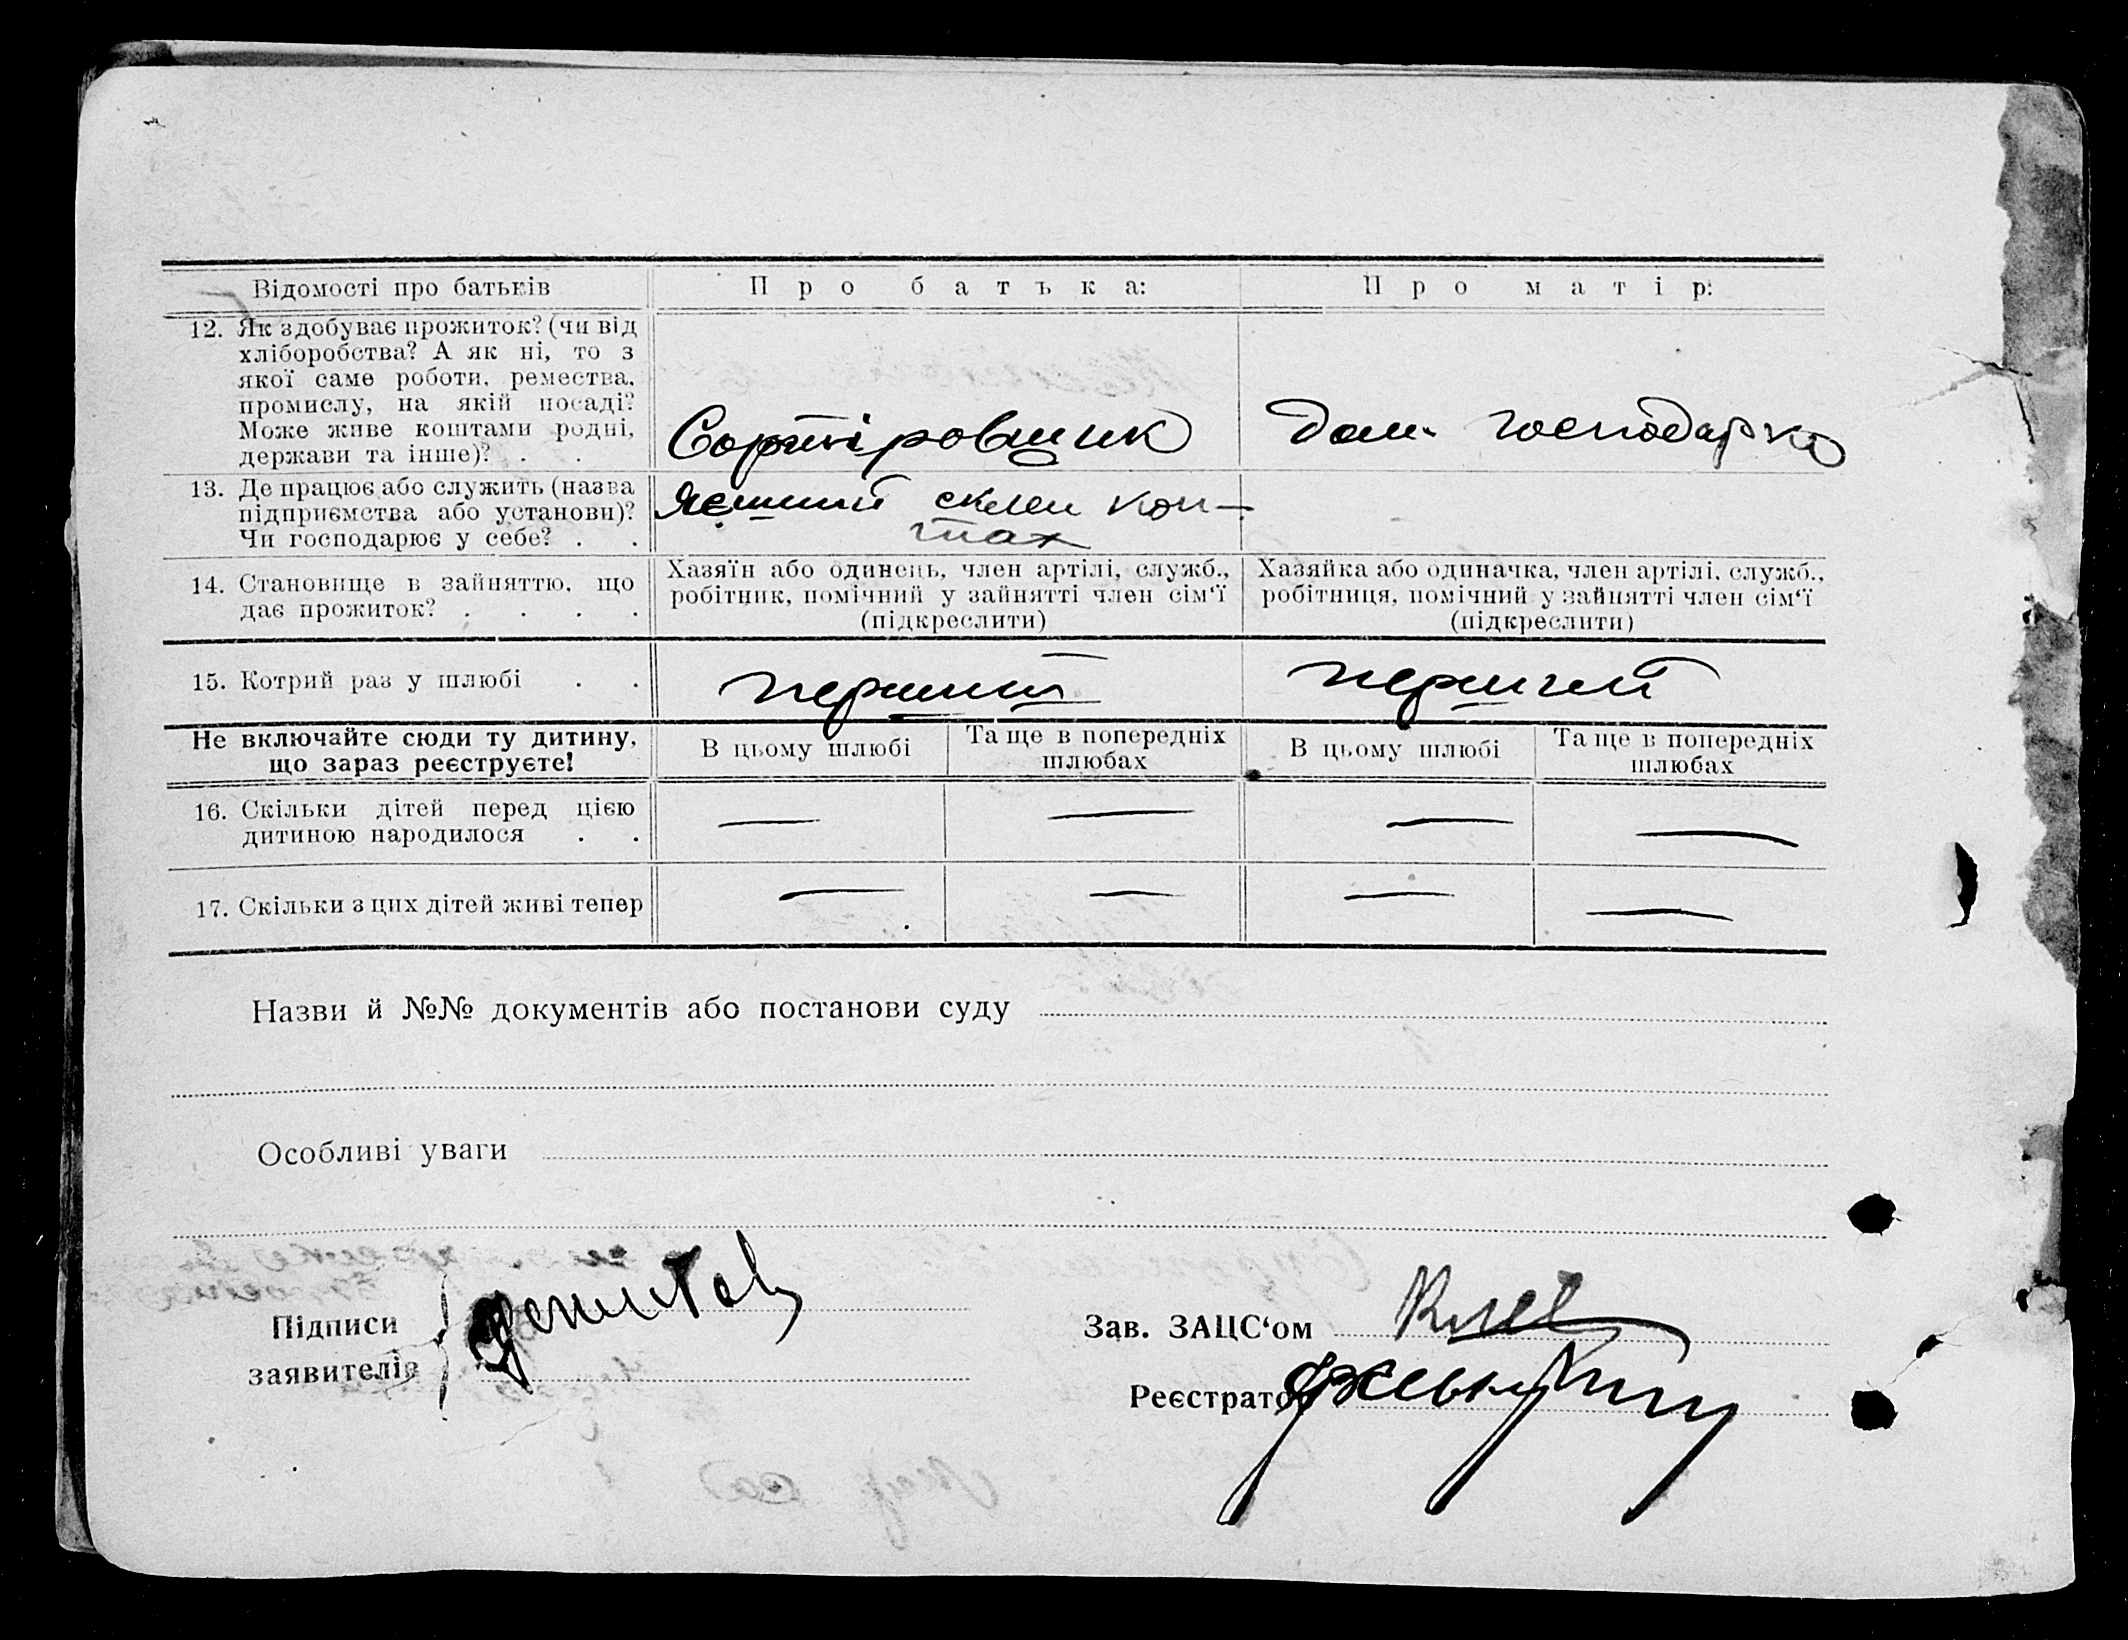 Відомості про батьків
Про батька:
Про матір:
12. Як здобуває прожиток? (чи від
хліборобства? А як ні, то з
якої саме роботи, ремества,
промислу, на якій посаді?
Може живе коштами родні,
держави та інше)? . .
Сортіровщик
Дом. господарка
13. Де працює або служить (назва
підприємства або установи)?
Чи господарює у себе? . .
склеп
14. Становище в зайняттю, що
дає прожиток? . . . .
Хазяїн або одинець, член артілі, служб.,
робітник, помічний у зайнятті член сім‘ї
(підкреслити)
Хазяйка або одиначка, член артілі, служб.,
робітниця, помічний у зайнятті член сім‘ї
(підкреслити)
15. Котрий раз у шлюбі . .
перший
перший
Не включайте сюди ту дитину,
що зараз реєструєте!
В цьому шлюбі
Та ще в попередніх
шлюбах
В цьому шлюбі
Та ще в попередніх
шлюбах
16. Скільки дітей перед цією
дитиною народилося . .
— — — —
17. Скільки з цих дітей живі тепер
— — — —
Назви й №№ документів або постанови суду
Особливі уваги
Підписи
заявителів
Зав. ЗАЦС‘ом
Реєстратор